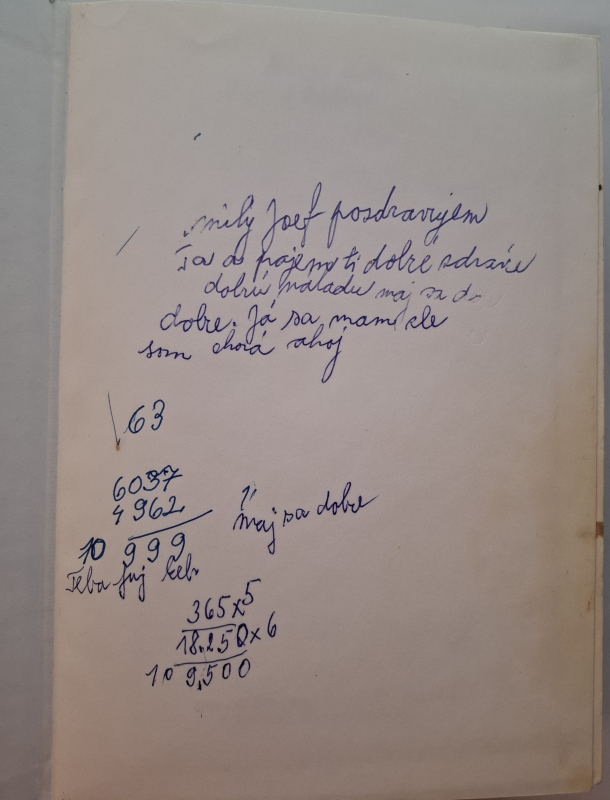 mily Josef pozdravujem
Ta a prajem ti dobré zdravie
dobrú naladu maj sa do
dobre. Já sa mam zle
som chorá ahoj
63
6037
4962
10 999
maj sa dobre
Teba
365x5
18.250x6
10 9,500